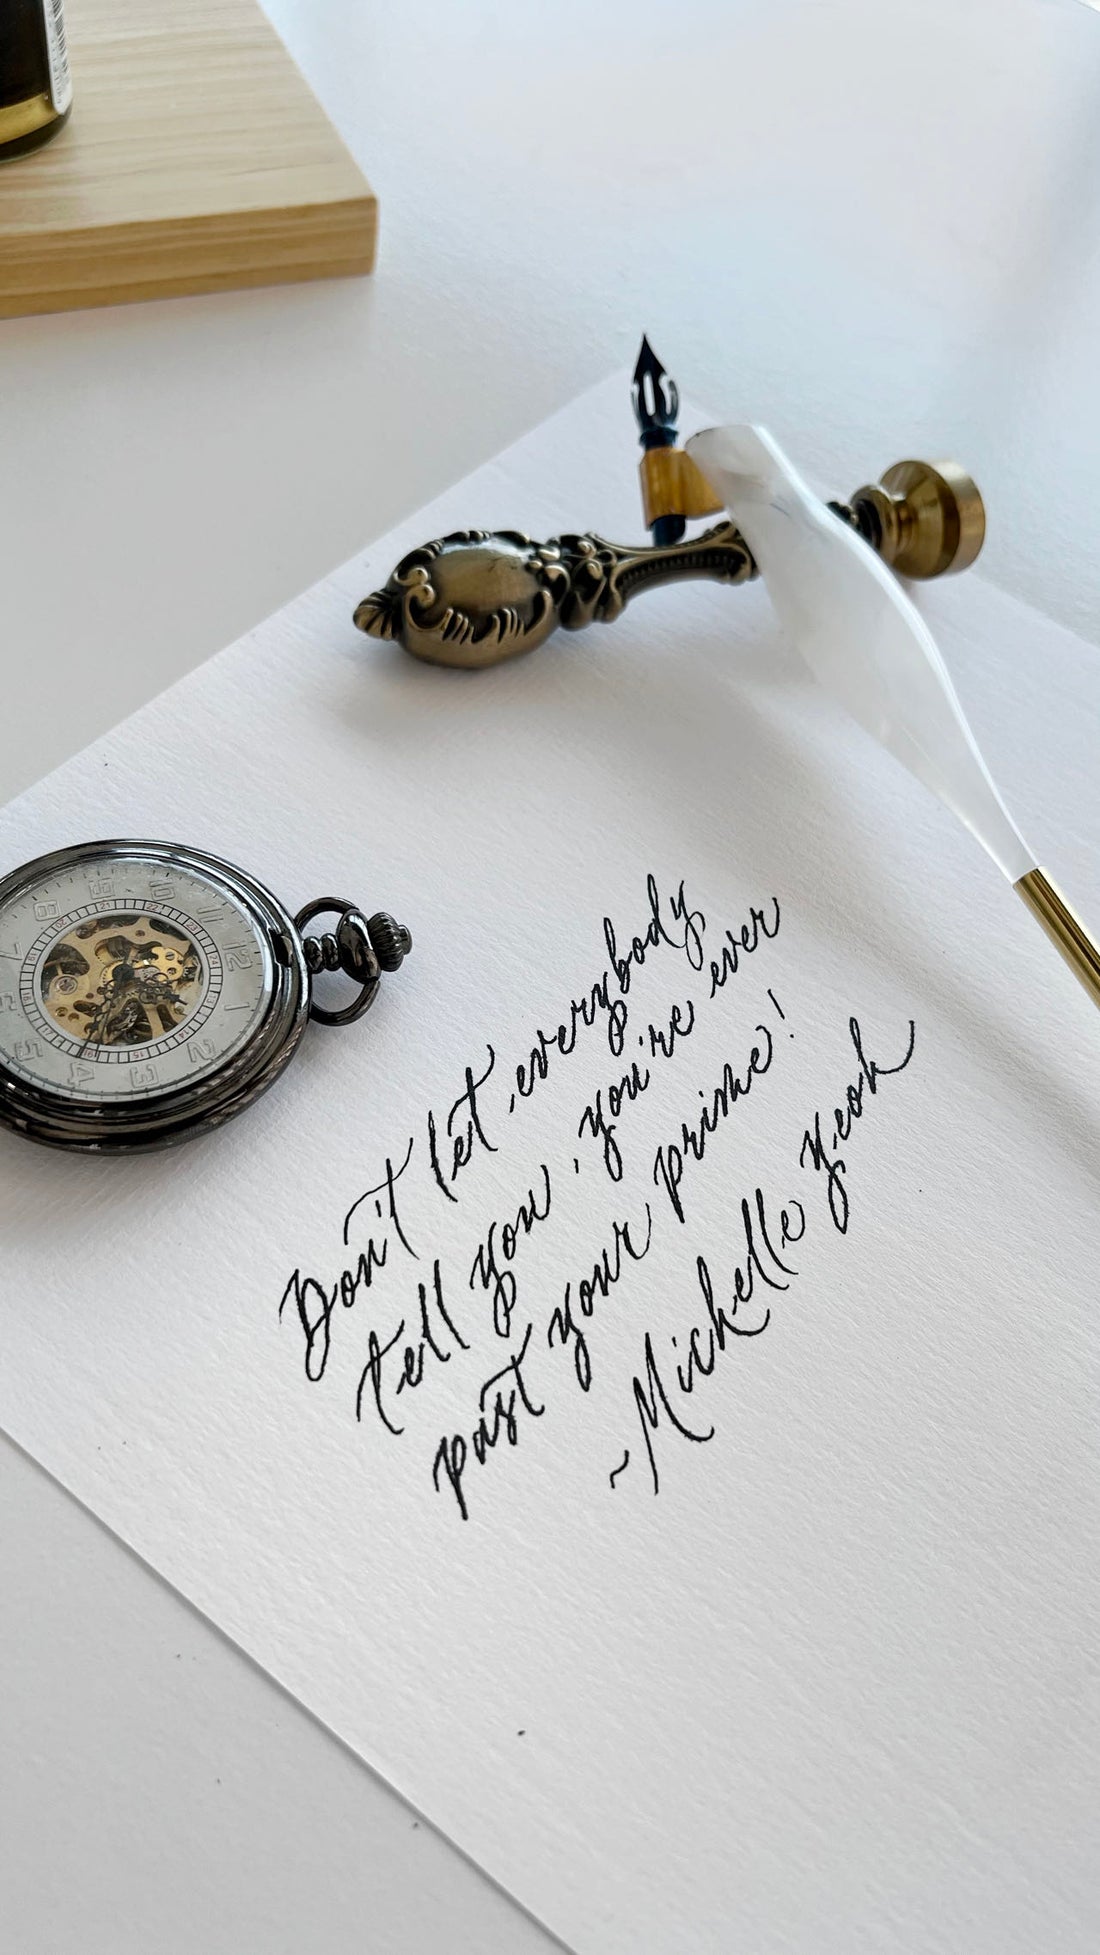 Don't let everybody
tell you, you're ever
past your prime!
~Michelle Yeoh